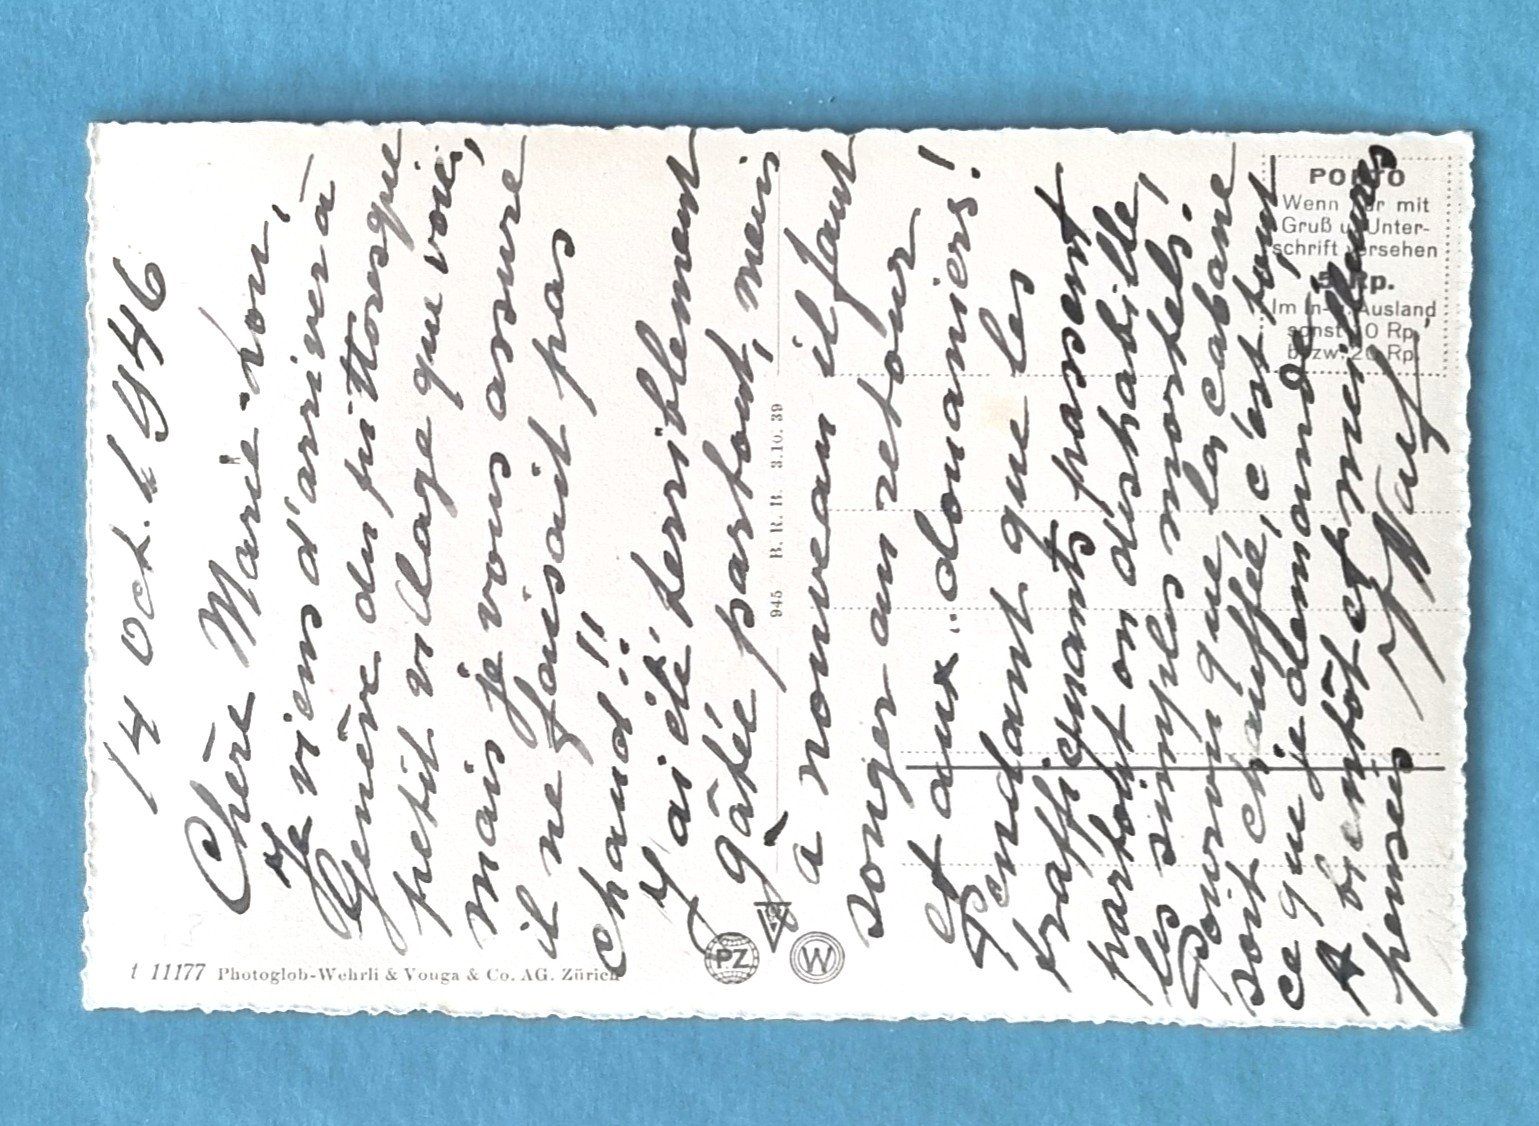 14 Oct. 1946
Chère Marie-Lou,
Je viens d'arriver à
Genève du pittoresque
petit village que voici,
mais je vous assure
il ne faisait pas
chaud!!
J'ai été terriblement
gâtée partout, mais
à nouveau il faut
songer au retour
et aux "douaniers!
Pendant que les
traffiquants passent
partout on déshabille
les simples mortels!
Pourvu que la cabane
soit chauffée, c'est tout
ce que je demande
A bientôt et meilleures
pensées
t 11177 Photoglob-Wehrli & Vouga & Co. AG. Zürich
PZ
W
945 B. R. B. 3.10.39
PORTO
Wenn nur mit
Gruß u. Unter-
schrift versehen
5 Rp.
Im In- u. Ausland
sonst 10 Rp.
bezw. 20 Rp.